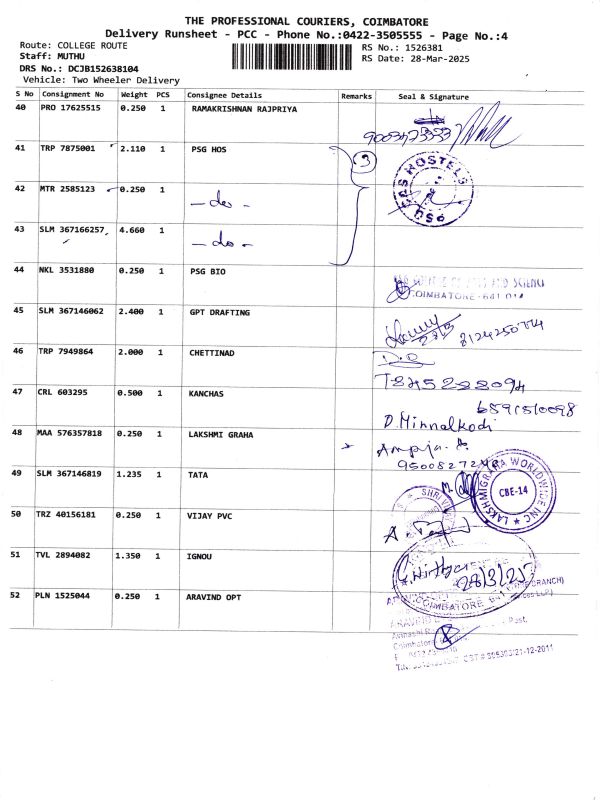 THE PROFESSIONAL COURIERS, COIMBATORE
Delivery Runsheet - PCC - Phone No.:0422-3505555 - Page No.:4
Route: COLLEGE ROUTE
Staff: MUTHU
DRS No.: DCJB152638104
Vehicle: Two Wheeler Delivery
RS No.: 1526381
RS Date: 28-Mar-2025
S No Consignment No Weight PCS Consignee Details Remarks Seal & Signature
40 PRO 17625515 0.250 1 RAMAKRISHNAN RAJPRIYA
41 TRP 7875001 2.110 1 PSG HOS 3
42 MTR 2585123 0.250 1 - do -
43 SLM 367166257 4.660 1 - do -
44 NKL 3531880 0.250 1 PSG BIO
COIMBATORE - 641 014
45 SLM 367146062 2.400 1 GPT DRAFTING
46 TRP 7949864 2.000 1 CHETTINAD
47 CRL 603295 0.500 1 KANCHAS
D. Minnalkodi
48 MAA 576357818 0.250 1 LAKSHMI GRAHA
LAKSHMIGRAHA WORLDWIDE INC
CBE-14
49 SLM 367146819 1.235 1 TATA
50 TRZ 40156181 0.250 1 VIJAY PVC
51 TVL 2894082 1.350 1 IGNOU
28/3/25
COIMBATORE
52 PLN 1525044 0.250 1 ARAVIND OPT